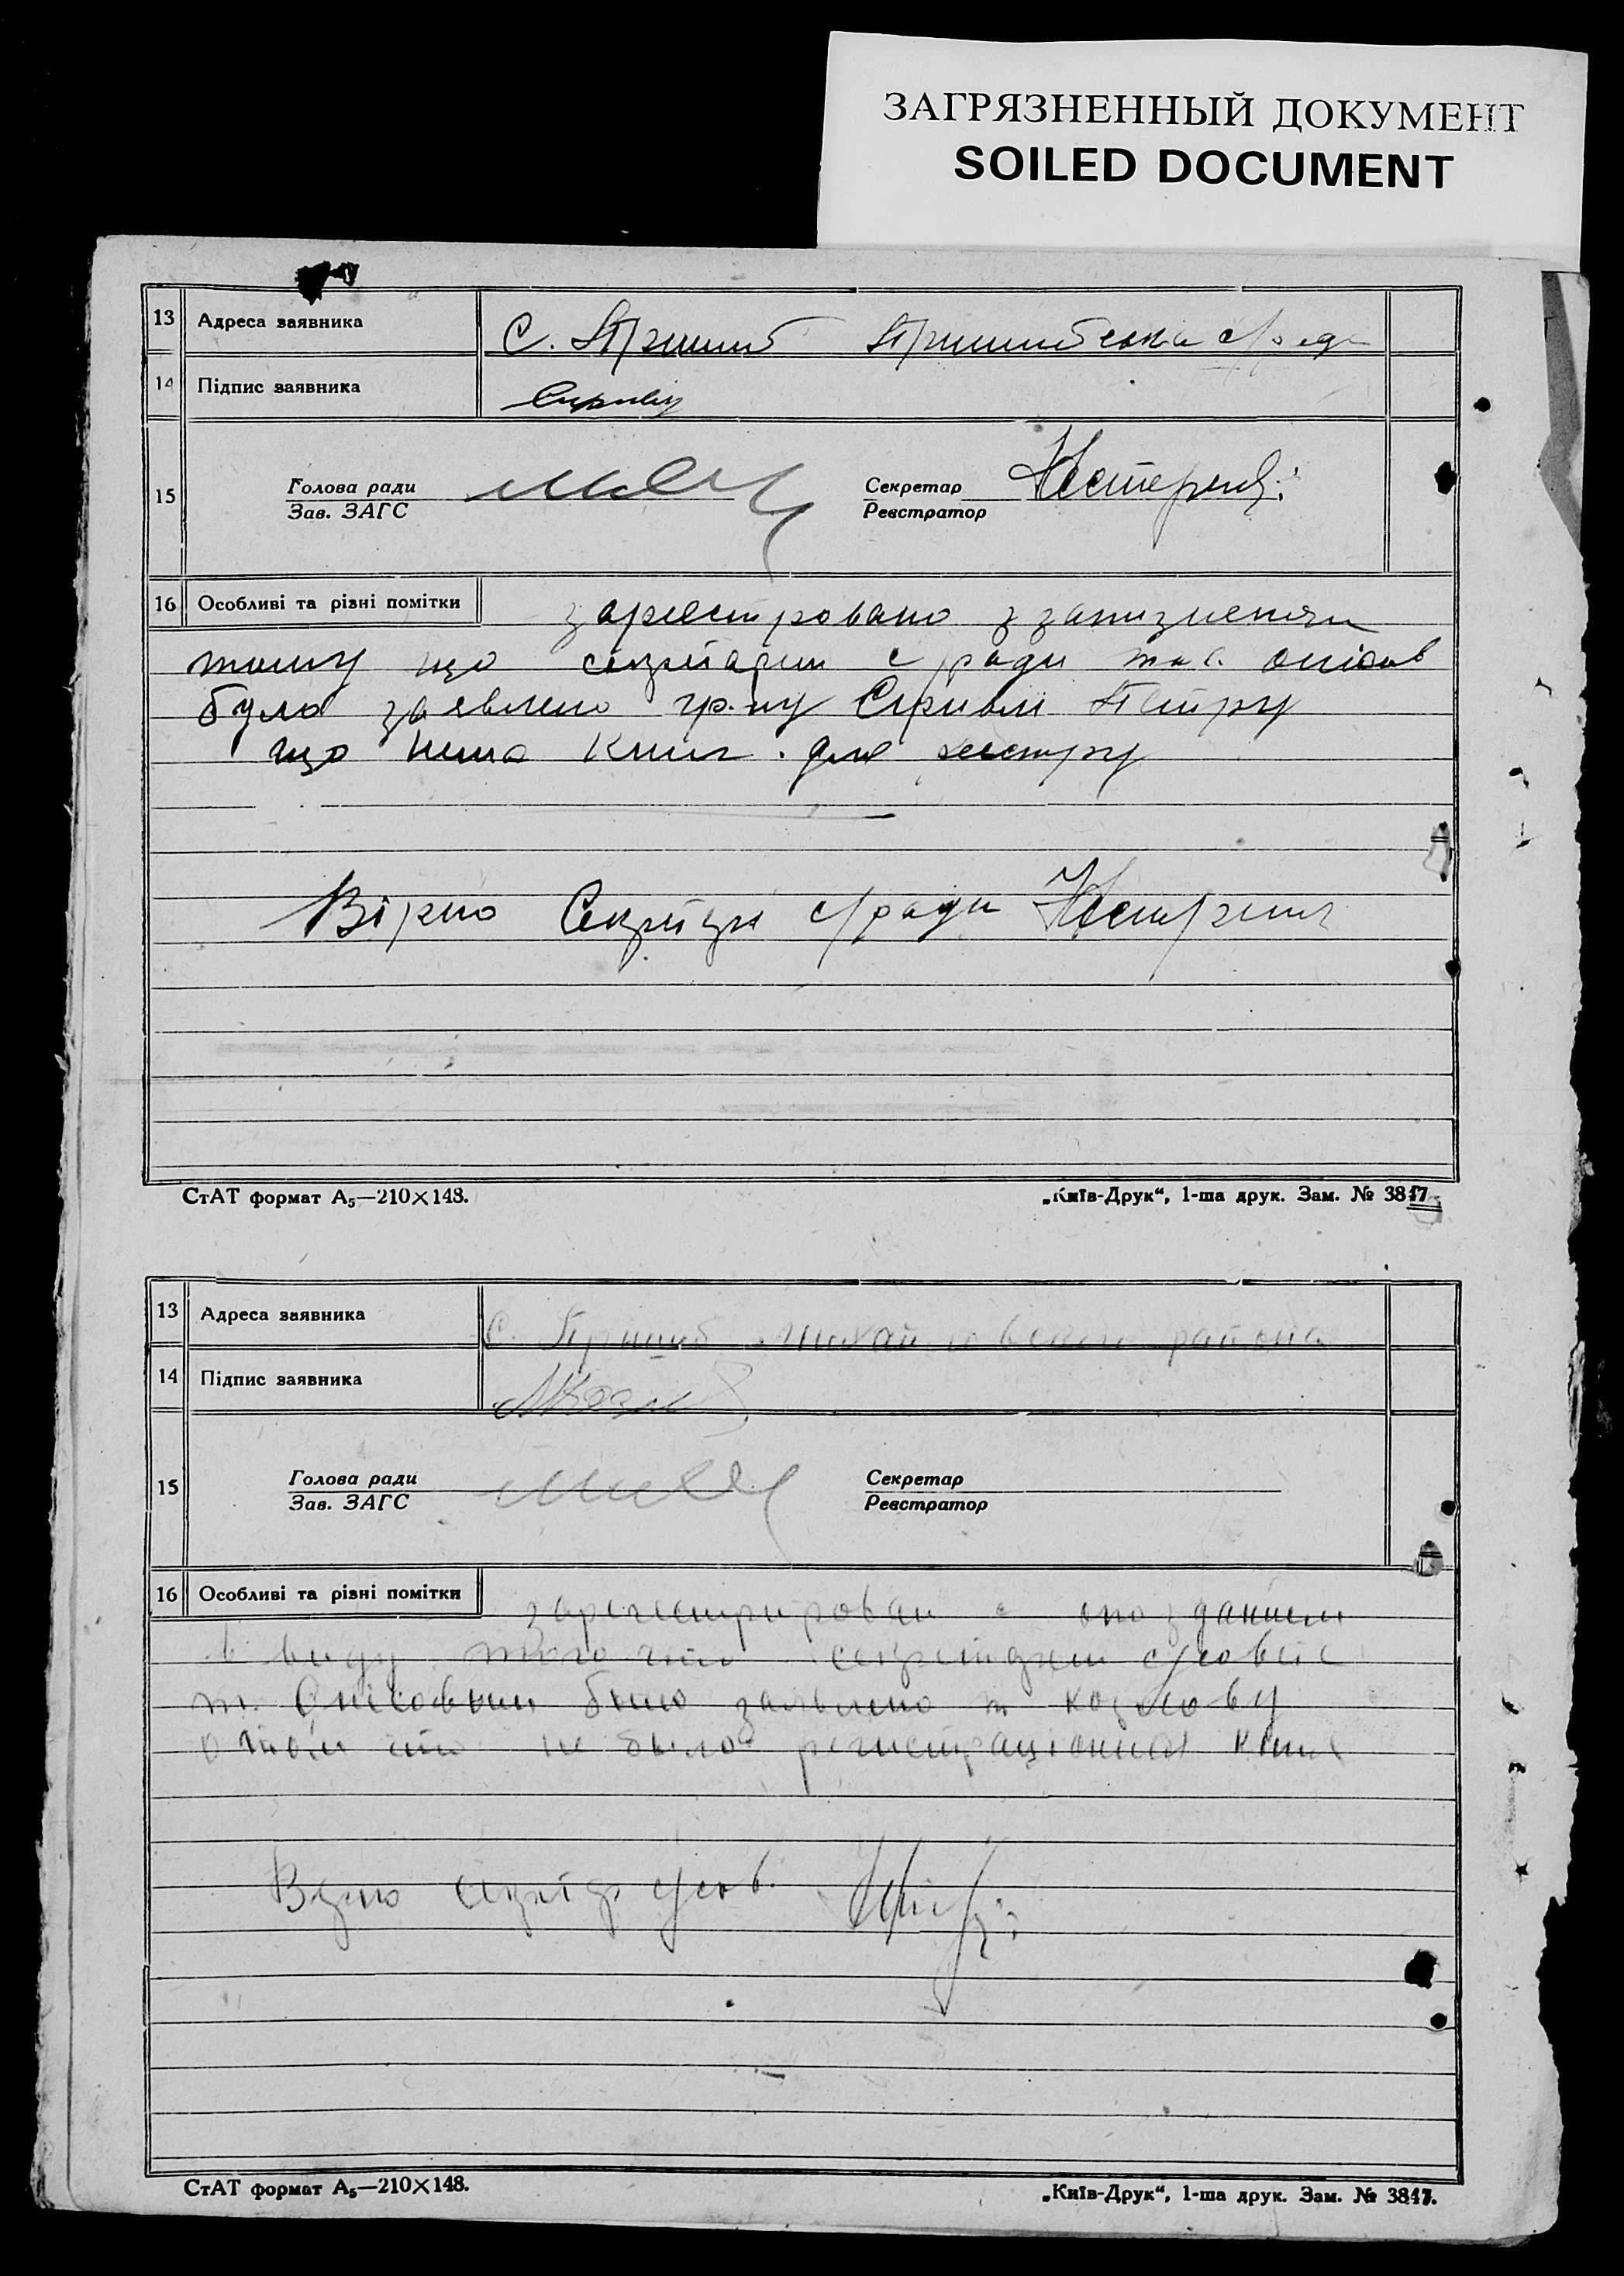 ЗАГРЯЗНЕННЫЙ ДОКУМЕНТ
SOILED DOCUMENT
13 Адреса заявника С. Пришиб Пришибська с/рада
14 Підпис заявника
15 Голова ради Секретар
Зав. ЗАГС Реєстратор
16 Особливі та різні помітки зареєстровано з запизненям
тому що секритарем с/ради
було заявлено гр-ну Петру
що нема книг для реєстру
Вірно Секритарь с/ради
СтАТ формат А₅—210×148.
„Київ-Друк“, 1-ша друк. Зам. № 3817
13 Адреса заявника С. Пришиб Михайловского района
14 Підпис заявника
15 Голова ради Секретар
Зав. ЗАГС Реєстратор
16 Особливі та різні помітки зарегистрирован с опозданием
в виду того что секритарем с/совета
т. было заявлено т Козлову
о том что не было регистрационных книг
Верно секритар с/сов.
СтАТ формат А₅—210×148.
„Київ-Друк“, 1-ша друк. Зам. № 3817.